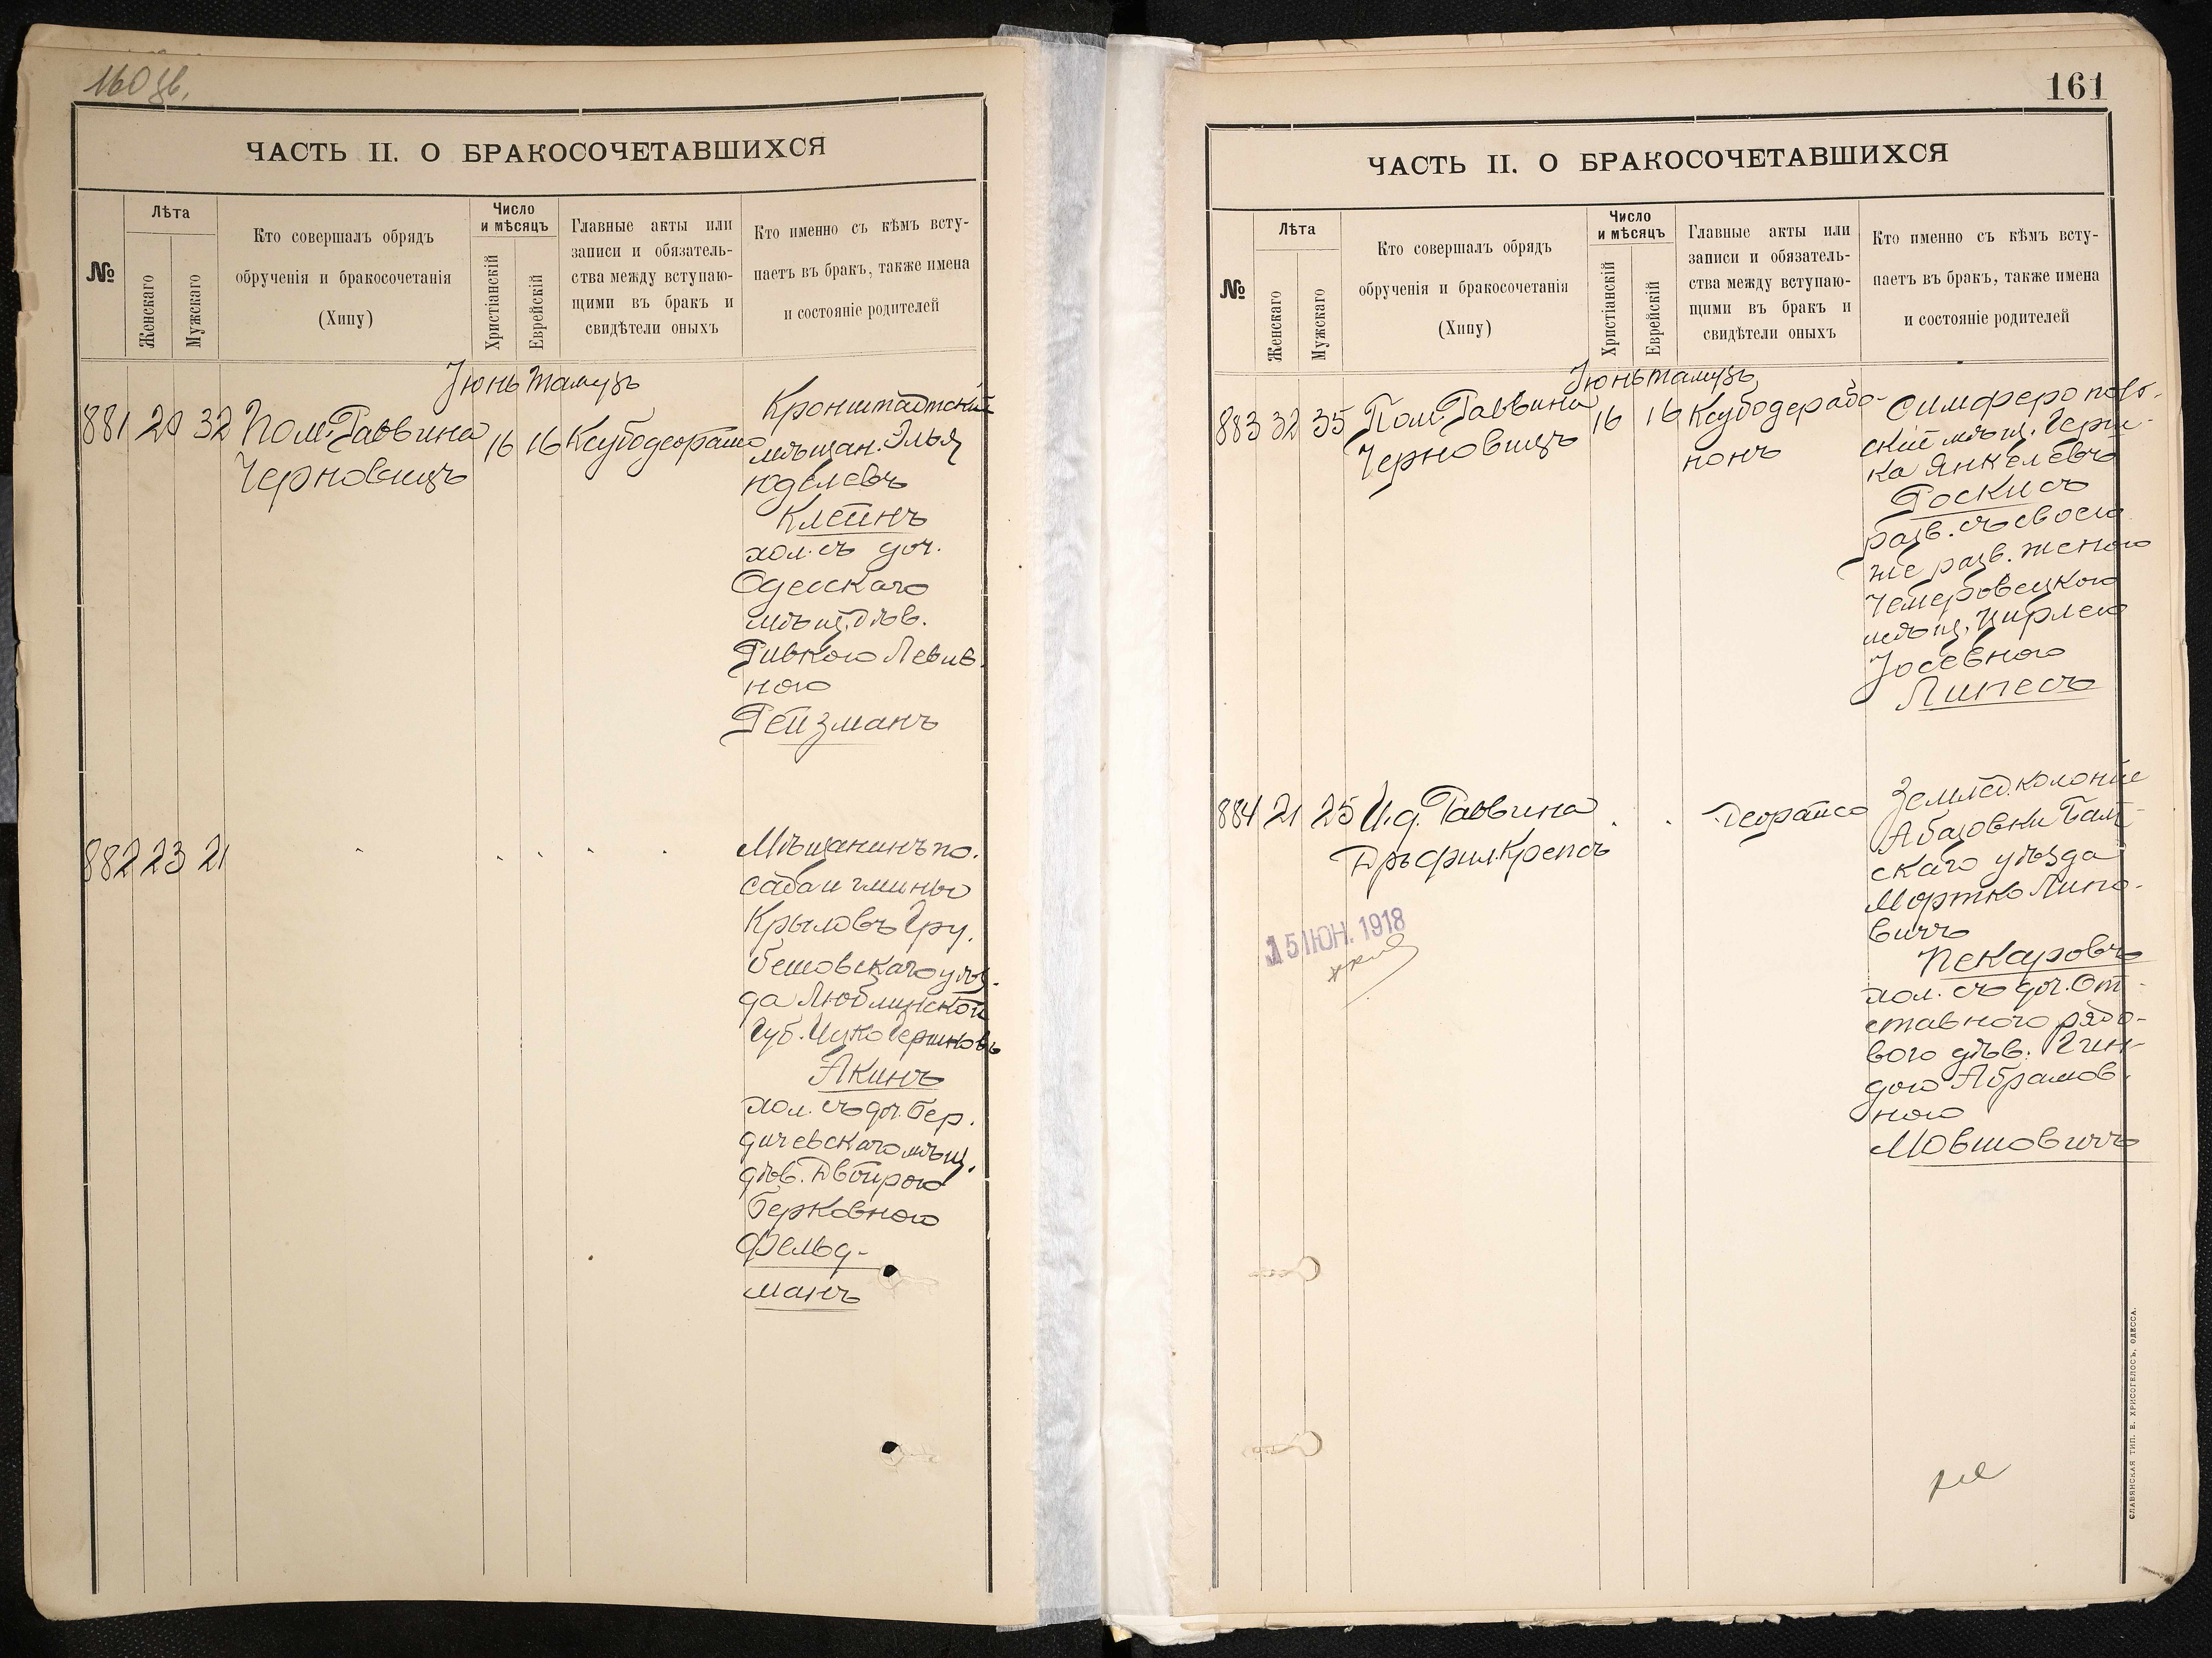 160 об.
ЧАСТЬ II. О БРАКОСОЧЕТАВШИХСЯ
№
Лѣта
Женскаго
Мужскаго
Кто совершалъ обрядъ
обрученія и бракосочетанія
(Хипу)
Число
и мѣсяцъ
Христіанскій
Еврейскій
Главные акты или
записи и обязатель-
ства между вступаю-
щими въ бракъ и
свидѣтели оныхъ
Кто именно съ кѣмъ всту-
паетъ въ бракъ, также имена
и состояніе родителей
Іюнь Тамузъ
881 29 32 Пом. Раввина
Черновицъ
16 16 Ксубодеорайсо
Кронштадтскій
мѣщан. Элья
Юделевъ
Клейнъ
хол. съ доч.
Одесскаго
мѣщ. дѣв.
Ривкою Левив-
ною
Рейзманъ
882 23 21
Мѣщанинъ по-
сада и гмины
Крыловъ Гру-
бешовскаго уѣз-
да Люблинской
Губ. Ицко Гершковъ
Акинъ
хол. съ доч. Бер-
дичевскаго мѣщ.
дѣв. Двойрою
Берковною
Фельд-
манъ
161
ЧАСТЬ II. О БРАКОСОЧЕТАВШИХСЯ
№
Лѣта
Женскаго
Мужскаго
Кто совершалъ обрядъ
обрученія и бракосочетанія
(Хипу)
Число
и мѣсяцъ
Христіанскій
Еврейскій
Главные акты или
записи и обязатель-
ства между вступаю-
щими въ бракъ и
свидѣтели оныхъ
Кто именно съ кѣмъ всту-
паетъ въ бракъ, также имена
и состояніе родителей
Іюнь Тамузъ
883 32 35 Пом. Раввина
Черновицъ
16 16 Ксубодерабо-
нонъ
Симферополь-
скій мѣщ. Герш-
ка Янкелевъ
Роскисъ
разв. съ своею
же разв. женою
Чемеровецкою
мѣщ. Цирлею
Іосевною
Липесъ
884 21 25 И.д. Раввина
Дръ фил. Крепсъ
Деорайсо
Землед. колоніи
Абазовки Балт-
скаго уѣзда
Мортко Липо-
вичъ
Пекаровъ
хол. съ доч. От-
ставного рядо-
вого дѣв. Гин-
дою Абрамов-
ною
Мовшовичъ
15 ІЮН. 1918
СЛАВЯНСКАЯ ТИП. Е. ХРИСОГЕЛОСЪ, ОДЕССА.